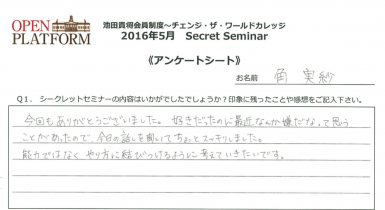 OPEN
PLATFORM
池田貴将会員制度～チェンジ・ザ・ワールドカレッジ
2016年5月 Secret Seminar
《アンケートシート》
お名前 角 実紗
Q1. シークレットセミナーの内容はいかがでしたでしょうか？印象に残ったことや感想をご記入下さい。
今回もありがとうございました。好きだったのに最近なんか嫌だなって思う
ことがあったので、今日の話しを聞いてちょっとスッキリしました。
能力ではなく やり方に結びつけるように考えていきたいです。